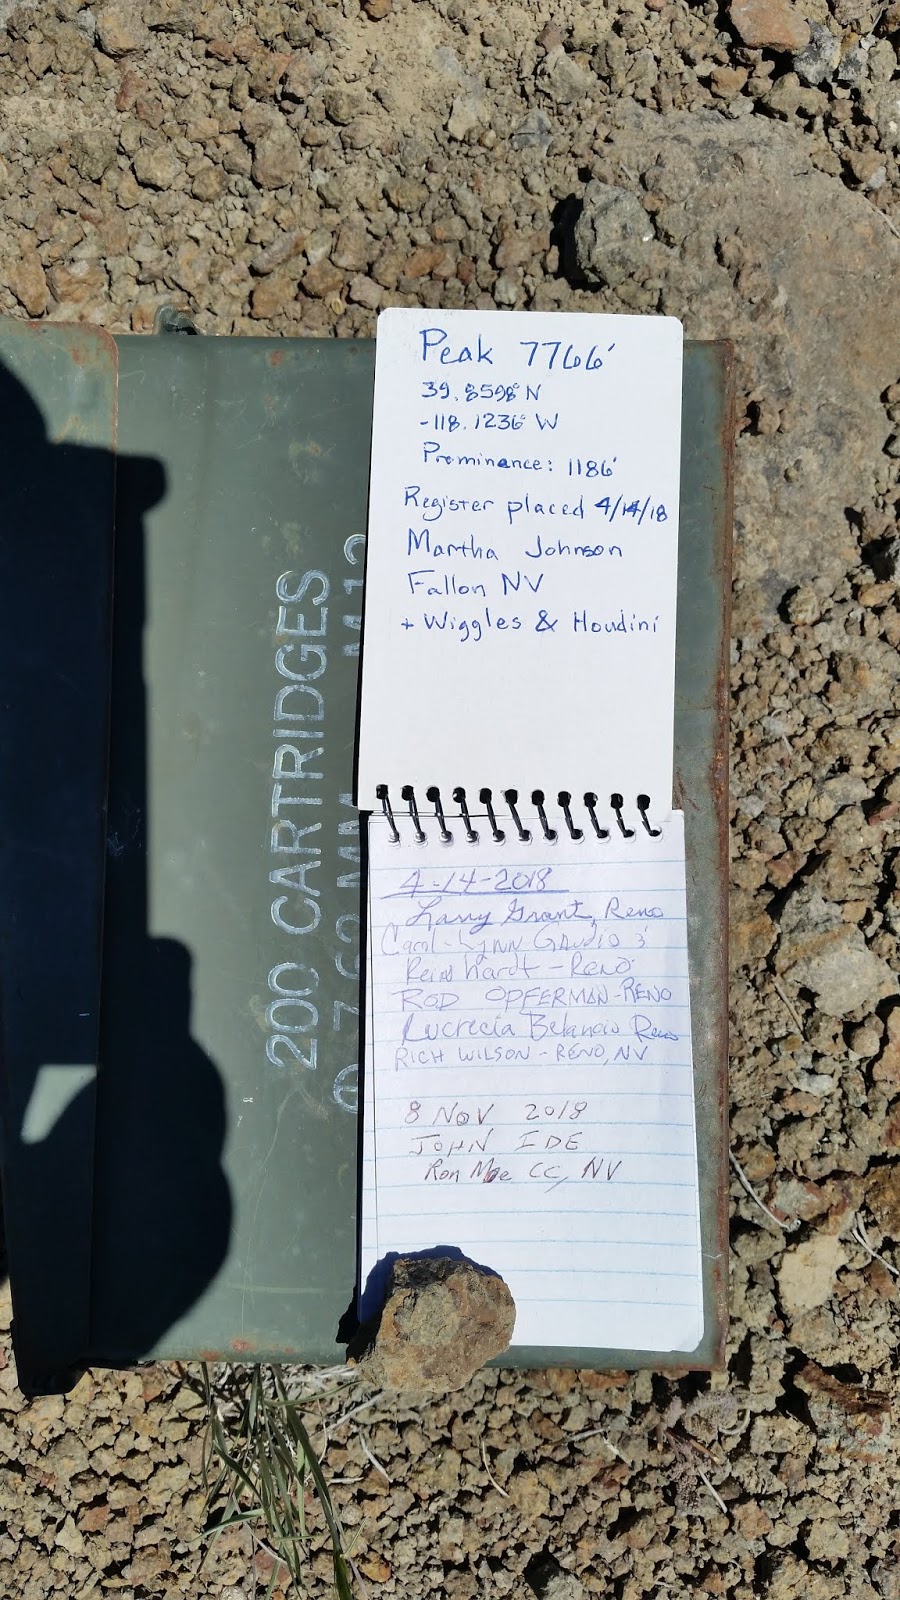 Peak 7766'
39.8598° N
-118.1236° W
Prominence: 1186'
Register placed 4/14/18
Martha Johnson
Fallon NV
+ Wiggles & Houdini
4-14-2018
Larry Grant, Reno
Carol-Lynn Gaudio &
Reinhardt - Reno
ROD OPFERMAN - RENO
Lucrecia Belancio Reno
RICH WILSON - RENO, NV
8 NOV 2018
JOHN IDE
Ron Moe CC, NV
200 CARTRIDGES
7.62 MM